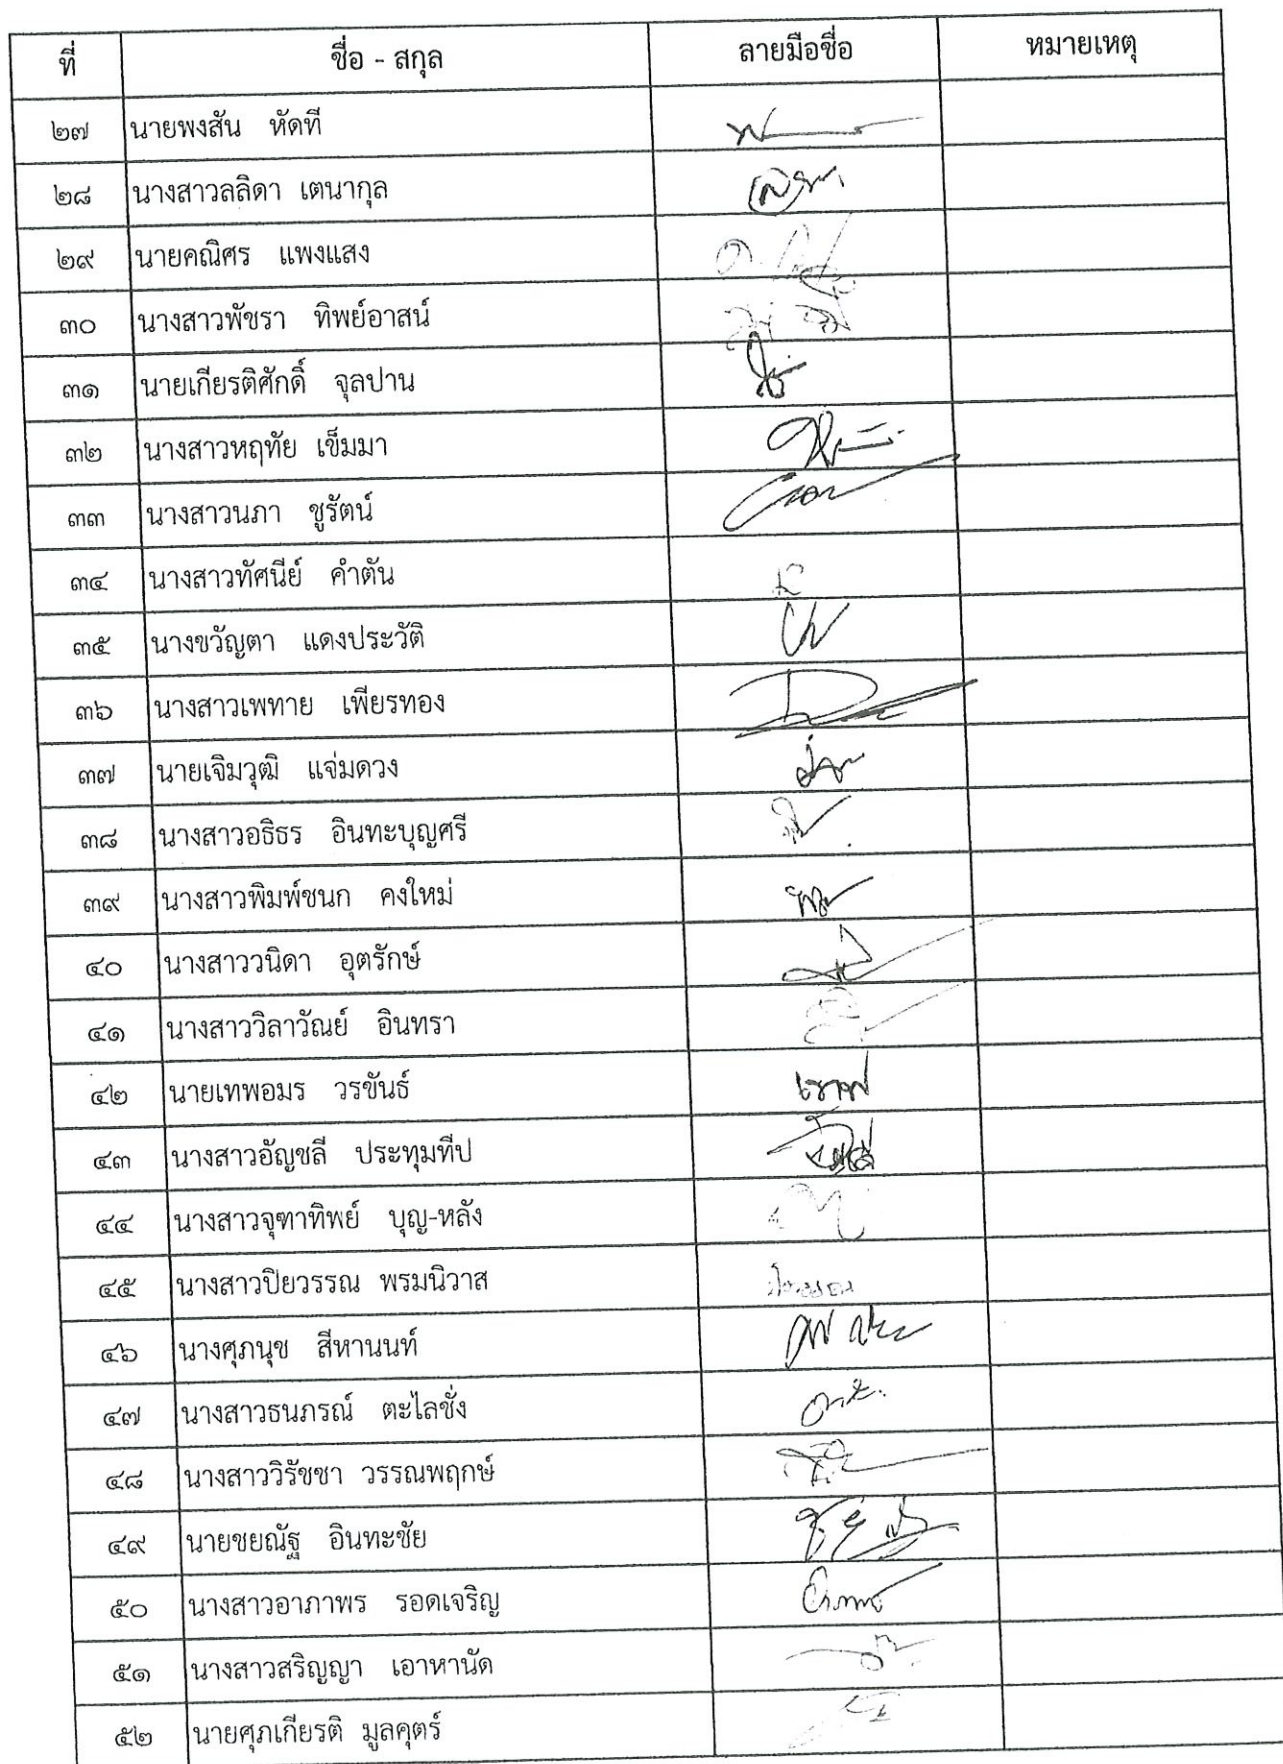 ที่ ชื่อ - สกุล ลายมือชื่อ หมายเหตุ
๒๗ นายพงสัน หัดที
๒๘ นางสาวลลิดา เตนากุล
๒๙ นายคณิศร แพงแสง
๓๐ นางสาวพัชรา ทิพย์อาสน์
๓๑ นายเกียรติศักดิ์ จุลปาน
๓๒ นางสาวหฤทัย เข็มมา
๓๓ นางสาวนภา ชูรัตน์
๓๔ นางสาวทัศนีย์ คำตัน
๓๕ นางขวัญตา แดงประวัติ
๓๖ นางสาวเพทาย เพียรทอง
๓๗ นายเจิมวุฒิ แจ่มดวง
๓๘ นางสาวอธิธร อินทะบุญศรี
๓๙ นางสาวพิมพ์ชนก คงใหม่
๔๐ นางสาววนิดา อุตรักษ์
๔๑ นางสาววิลาวัณย์ อินทรา
๔๒ นายเทพอมร วรขันธ์
๔๓ นางสาวอัญชลี ประทุมทีป
๔๔ นางสาวจุฑาทิพย์ บุญ-หลัง
๔๕ นางสาวปิยวรรณ พรมนิวาส
๔๖ นางศุภนุช สีหานนท์
๔๗ นางสาวธนภรณ์ ตะไลชั่ง
๔๘ นางสาววิรัชชา วรรณพฤกษ์
๔๙ นายชยณัฐ อินทะชัย
๕๐ นางสาวอาภาพร รอดเจริญ
๕๑ นางสาวสริญญา เอาหานัด
๕๒ นายศุภเกียรติ มูลคุตร์